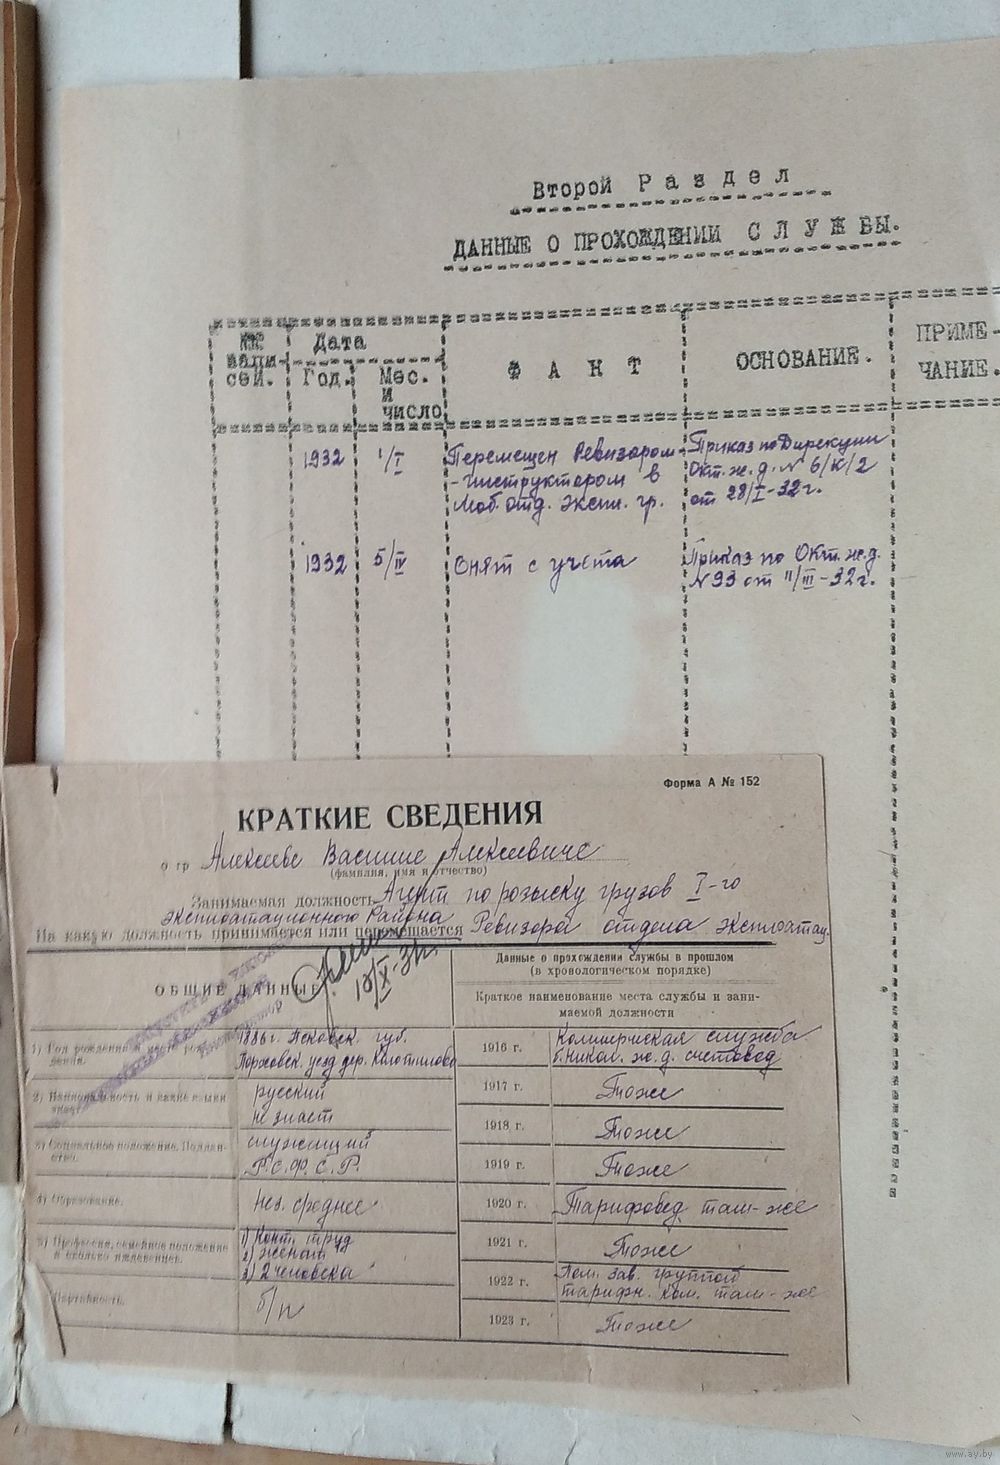 Второй Раздел
ДАННЫЕ О ПРОХОЖДЕНИИ СЛУЖБЫ.
№№ запи-сей.
Дата
Год.
Мес. и число
ФАКТ
ОСНОВАНИЕ.
ПРИМЕ-
ЧАНИЕ.
1932 1/I Перемещен Ревизором- Приказ по Дирекции
-инструктором в Окт. ж.д. № 6/К/2
Моб. отд. экспл. гр. от 28/I-32г.
1932 5/IV Снят с учета Приказ по Окт. ж.д.
№ 93 от 11/III-32г.
Форма А № 152
КРАТКИЕ СВЕДЕНИЯ
о гр Алексееве Василие Алексеевиче
(фамилия, имя и отчество)
Занимаемая должность Агент по розыску грузов I-го
эксплоатационного Района
На какую должность принимается или перемещается Ревизора отдела эксплоатац.
18/X-31г.
ОБЩИЕ ДАННЫЕ
Данные о прохождении службы в прошлом
(в хронологическом порядке)
Краткое наименование места службы и зани-
маемой должности
1) Год рождения и место рож-
дения.
1886 г. Псковск. губ.
Порховск. уезд дер.
2) Национальность и какие языки
знает
русский
не знает
3) Социальное положение. Поддан-
ство.
служащий
Р.С.Ф.С.Р.
4) Образование.
нез. среднее
5) Профессия, семейное положение
и сколько иждивенцев.
1) Конт. труд
2) женат
3) 2 человека
Партийность.
б/п
1916 г. Коммерческая служба
б. Никол. ж.д. счетовод
1917 г. Тоже
1918 г. Тоже
1919 г. Тоже
1920 г. Тарифовед там-же
1921 г. Тоже
1922 г. Пом. зав. группой
тарифн. ком. там-же
1923 г. Тоже
www.ay.by